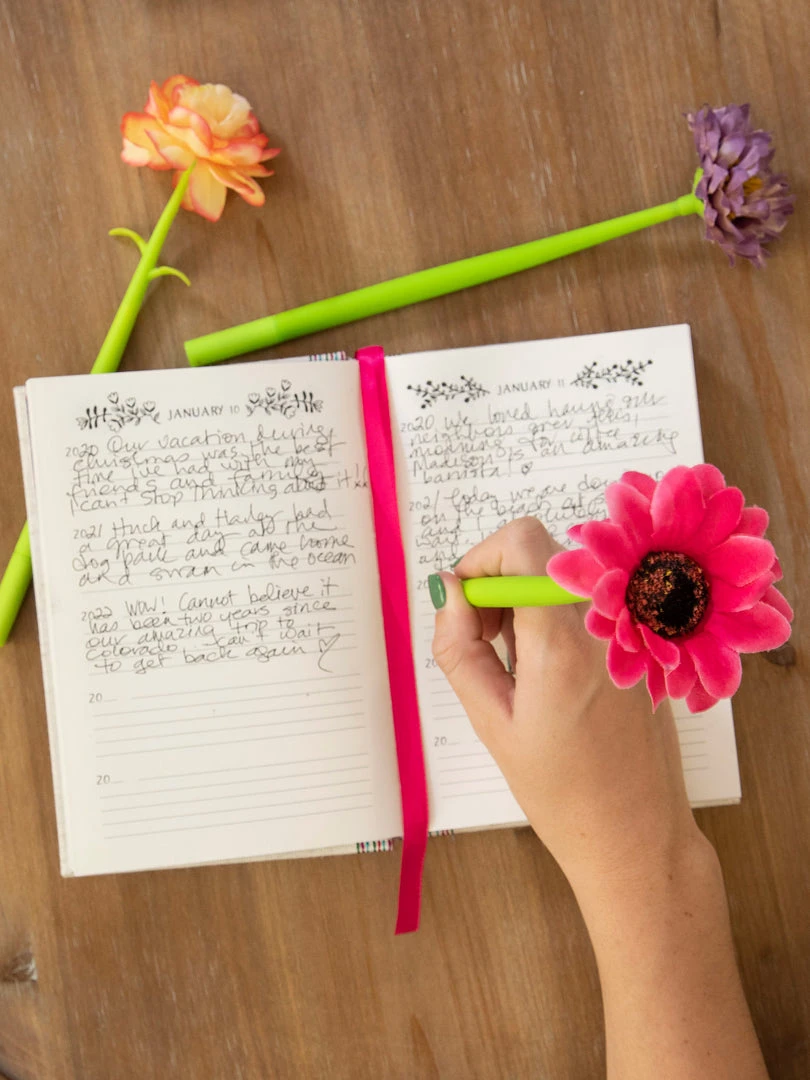 JANUARY 10
2020 Our vacation during
Christmas was the best
time we had with my
friends and family
I can't stop thinking about it!!
2021 Huck and Harley had
a great day at the
dog park and came home
and swam in the ocean
2022 WOW! Cannot believe it
has been two years since
our amazing trip to
Colorado can't wait
to get back again ♡
20
20
JANUARY 11
2020 we loved having our
neighbors over
morning for coffee
Madison is an amazing
barista ♡
2021 Today we
on the beach at
and
wait
20
20
20